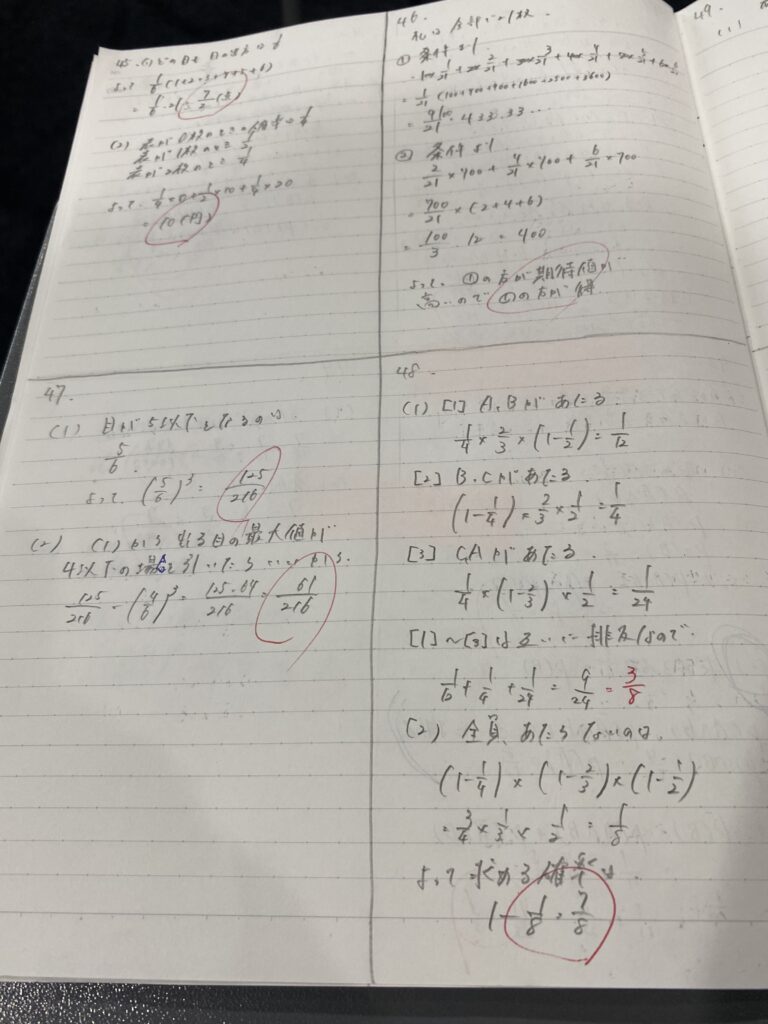 45. (1) どの目も 目の出方は 1/6
よって 1/6(1+2+3+4+5+6)
= 1/6・21 = 7/2 (点)
(2) 表が0枚のときの確率は 1/4
表が1枚のとき 1/2
表が2枚のとき 1/4
よって 1/4×0+1/2×10+1/4×20
= 10(円)
46.
札は全部で21枚
① 条件より
100×1/21+200×2/21+300×3/21+400×4/21+500×5/21+600×6/21
= 1/21 (100+400+900+1600+2500+3600)
= 9100/21 = 433.33…
② 条件より
2/21×700 + 4/21×700 + 6/21×700
= 700/21 × (2+4+6)
= 100/3・12 = 400
よって ①の方が期待値が
高いので ①の方が得
47.
(1) 目が5以下となるのは
5/6.
よって (5/6)³ = 125/216
(2) (1)から 出る目の最大値が
4以下の場合を引いたらいいから
125/216 - (4/6)³ = 125-64/216 = 61/216
48.
(1) [1] A,Bがあたる
1/4 × 2/3 × (1-1/2) = 1/12
[2] B.Cがあたる
(1-1/4) × 2/3 × 1/2 = 1/4
[3] C,Aがあたる
1/4 × (1-2/3) × 1/2 = 1/24
[1]~[3]は互いに排反なので
1/12 + 1/4 + 1/24 = 9/24 = 3/8
(2) 全員、あたらないのは、
(1-1/4) × (1-2/3) × (1-1/2)
= 3/4 × 1/3 × 1/2 = 1/8
よって求める確率は
1 - 1/8 = 7/8
49.